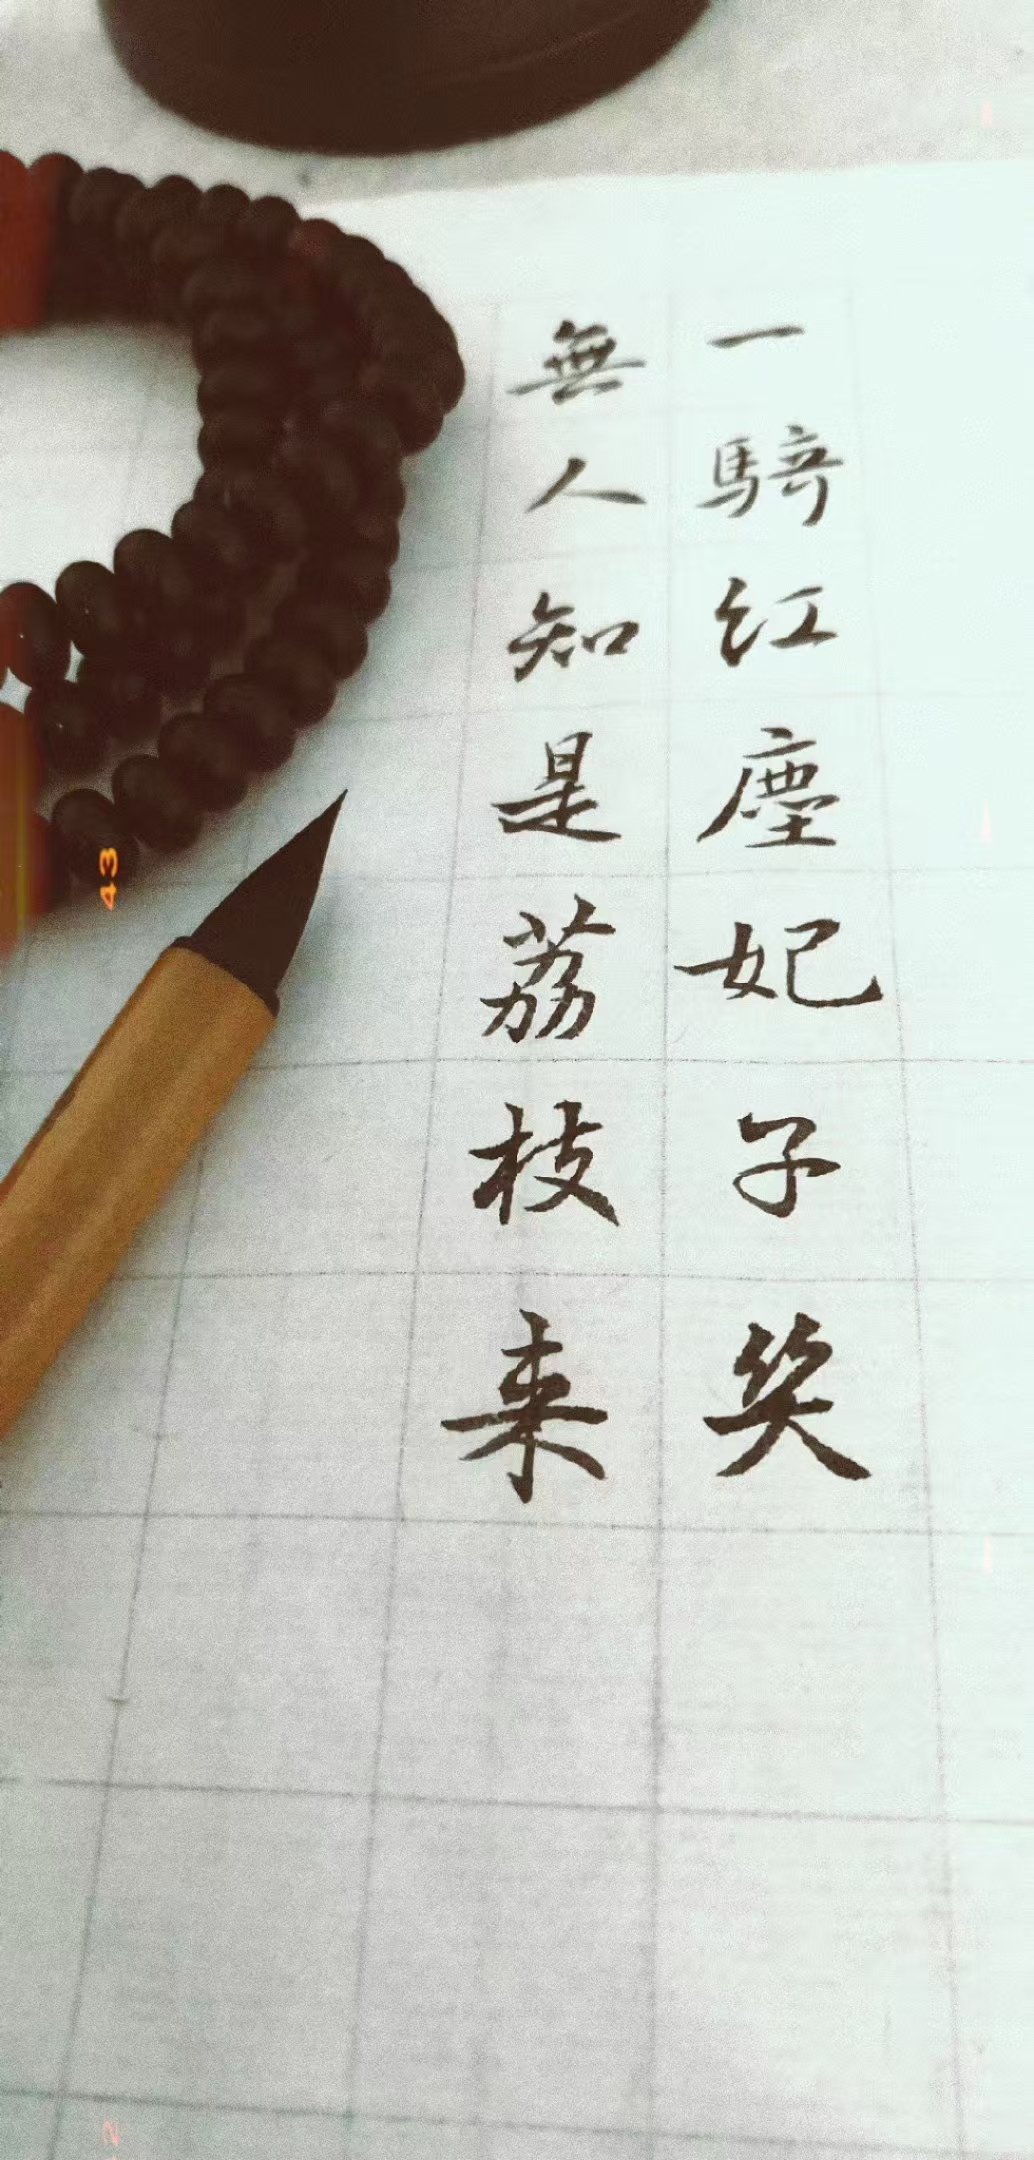 一騎红塵妃子笑
無人知是荔枝来
43
2